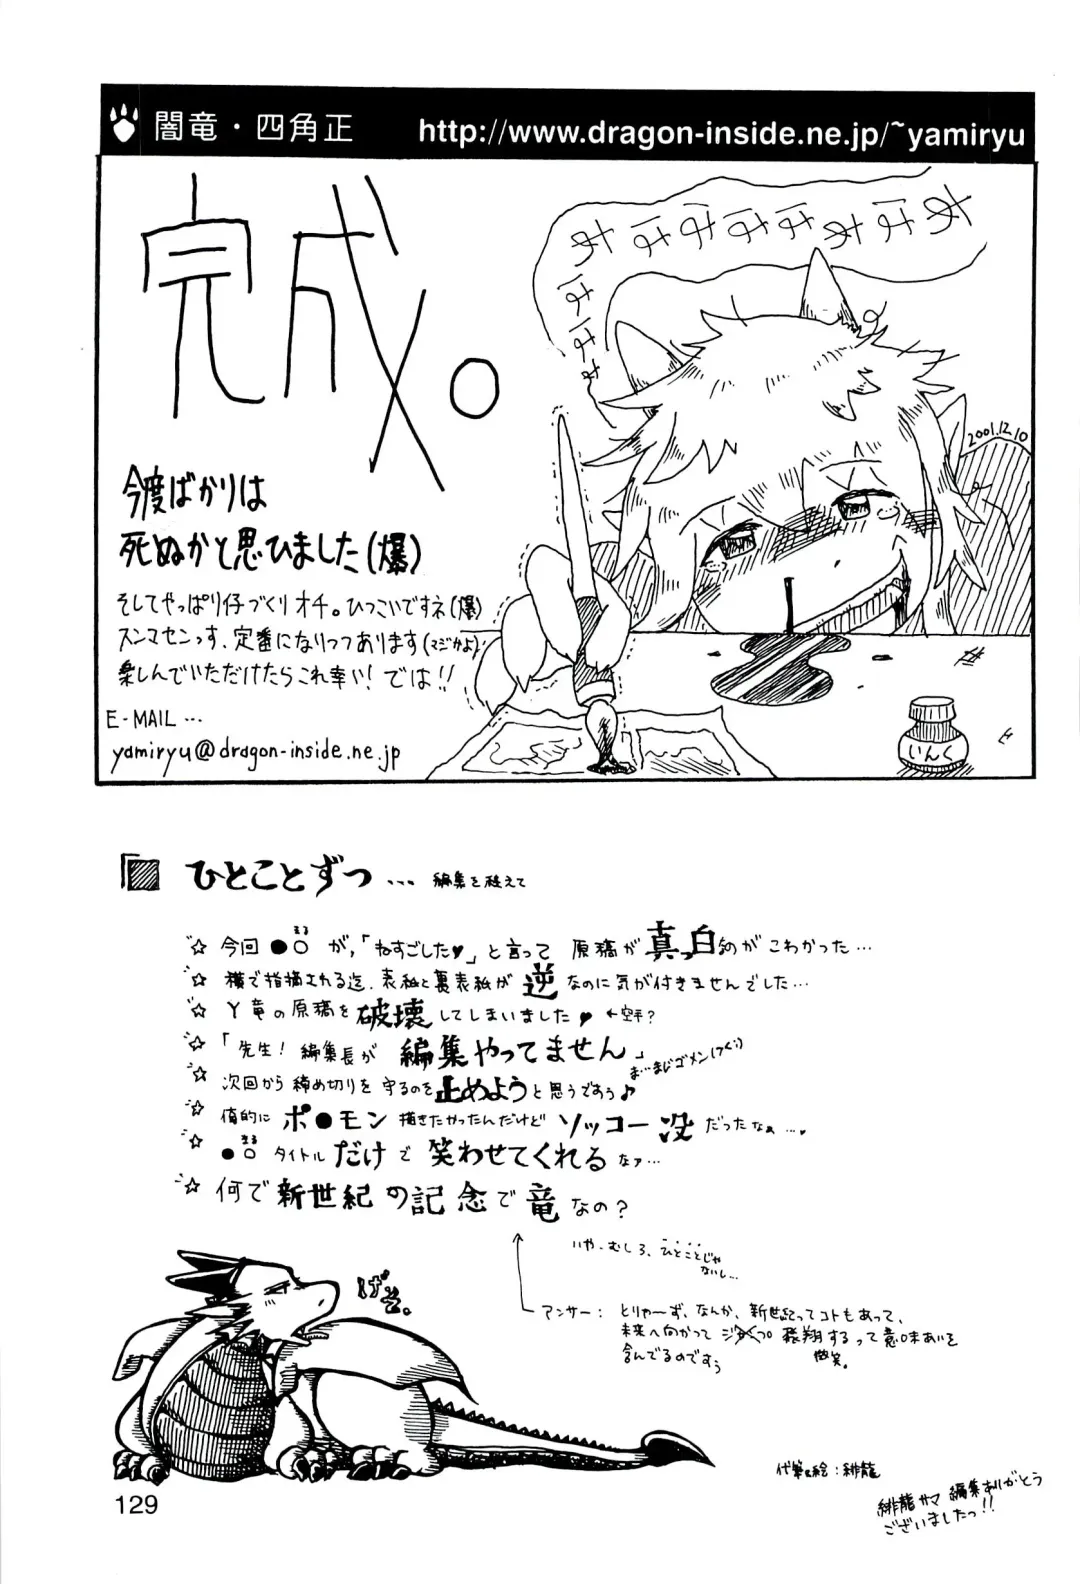 闇竜・四角正 http://www.dragon-inside.ne.jp/~yamiryu
完成。
あはははははははははは
2001.12.10
今度ばかりは
死ぬかと思ひました(爆)
そしてやっぱり仔づくりオチ。ひっこいですネ(爆)
スンマセンっす、定番になりつつあります(マジかよ)
楽しんでいただけたらこれ幸い! では!!
E-MAIL...
yamiryu@dragon-inside.ne.jp
いんく
ひとことずつ ... 編集を終えて
☆ 今回●○が、「ねすごした♥」と言って 原稿が真っ白なのがこわかった…
まる
☆ 横で指摘される迄、表紙と裏表紙が逆なのに気が付きませんでした…
☆ Y竜の原稿を破壊してしまいました♥ ←空手?
☆ 「先生! 編集長が 編集やってません」
ま…まじゴメン
☆ 次回から締め切りを守るのを止めようと思うですぅ♪
☆ 値的にポ●モン描きたかったんだけどソッコー没だったなぁ…
☆ ●○タイトルだけで笑わせてくれるなァ…
まる
☆ 何で新世紀の記念で竜なの?
いや、むしろ、ひとことじゃ
ないし…
げそ。
アンサー: とりゃ〜ず、なんか、新世紀ってコトもあって、
未来へ向かって 飛翔するって意味あいを
含んでるのですぅ 微笑。
代筆&絵:緋龍
緋龍サマ 編集ありがとう
ございましたっ!!
129